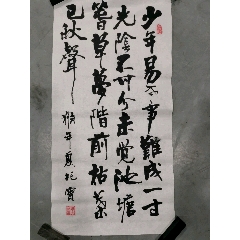 少年易老學難成一寸
光陰不可輕未覺池塘
春草夢階前梧葉
已秋聲 年夏